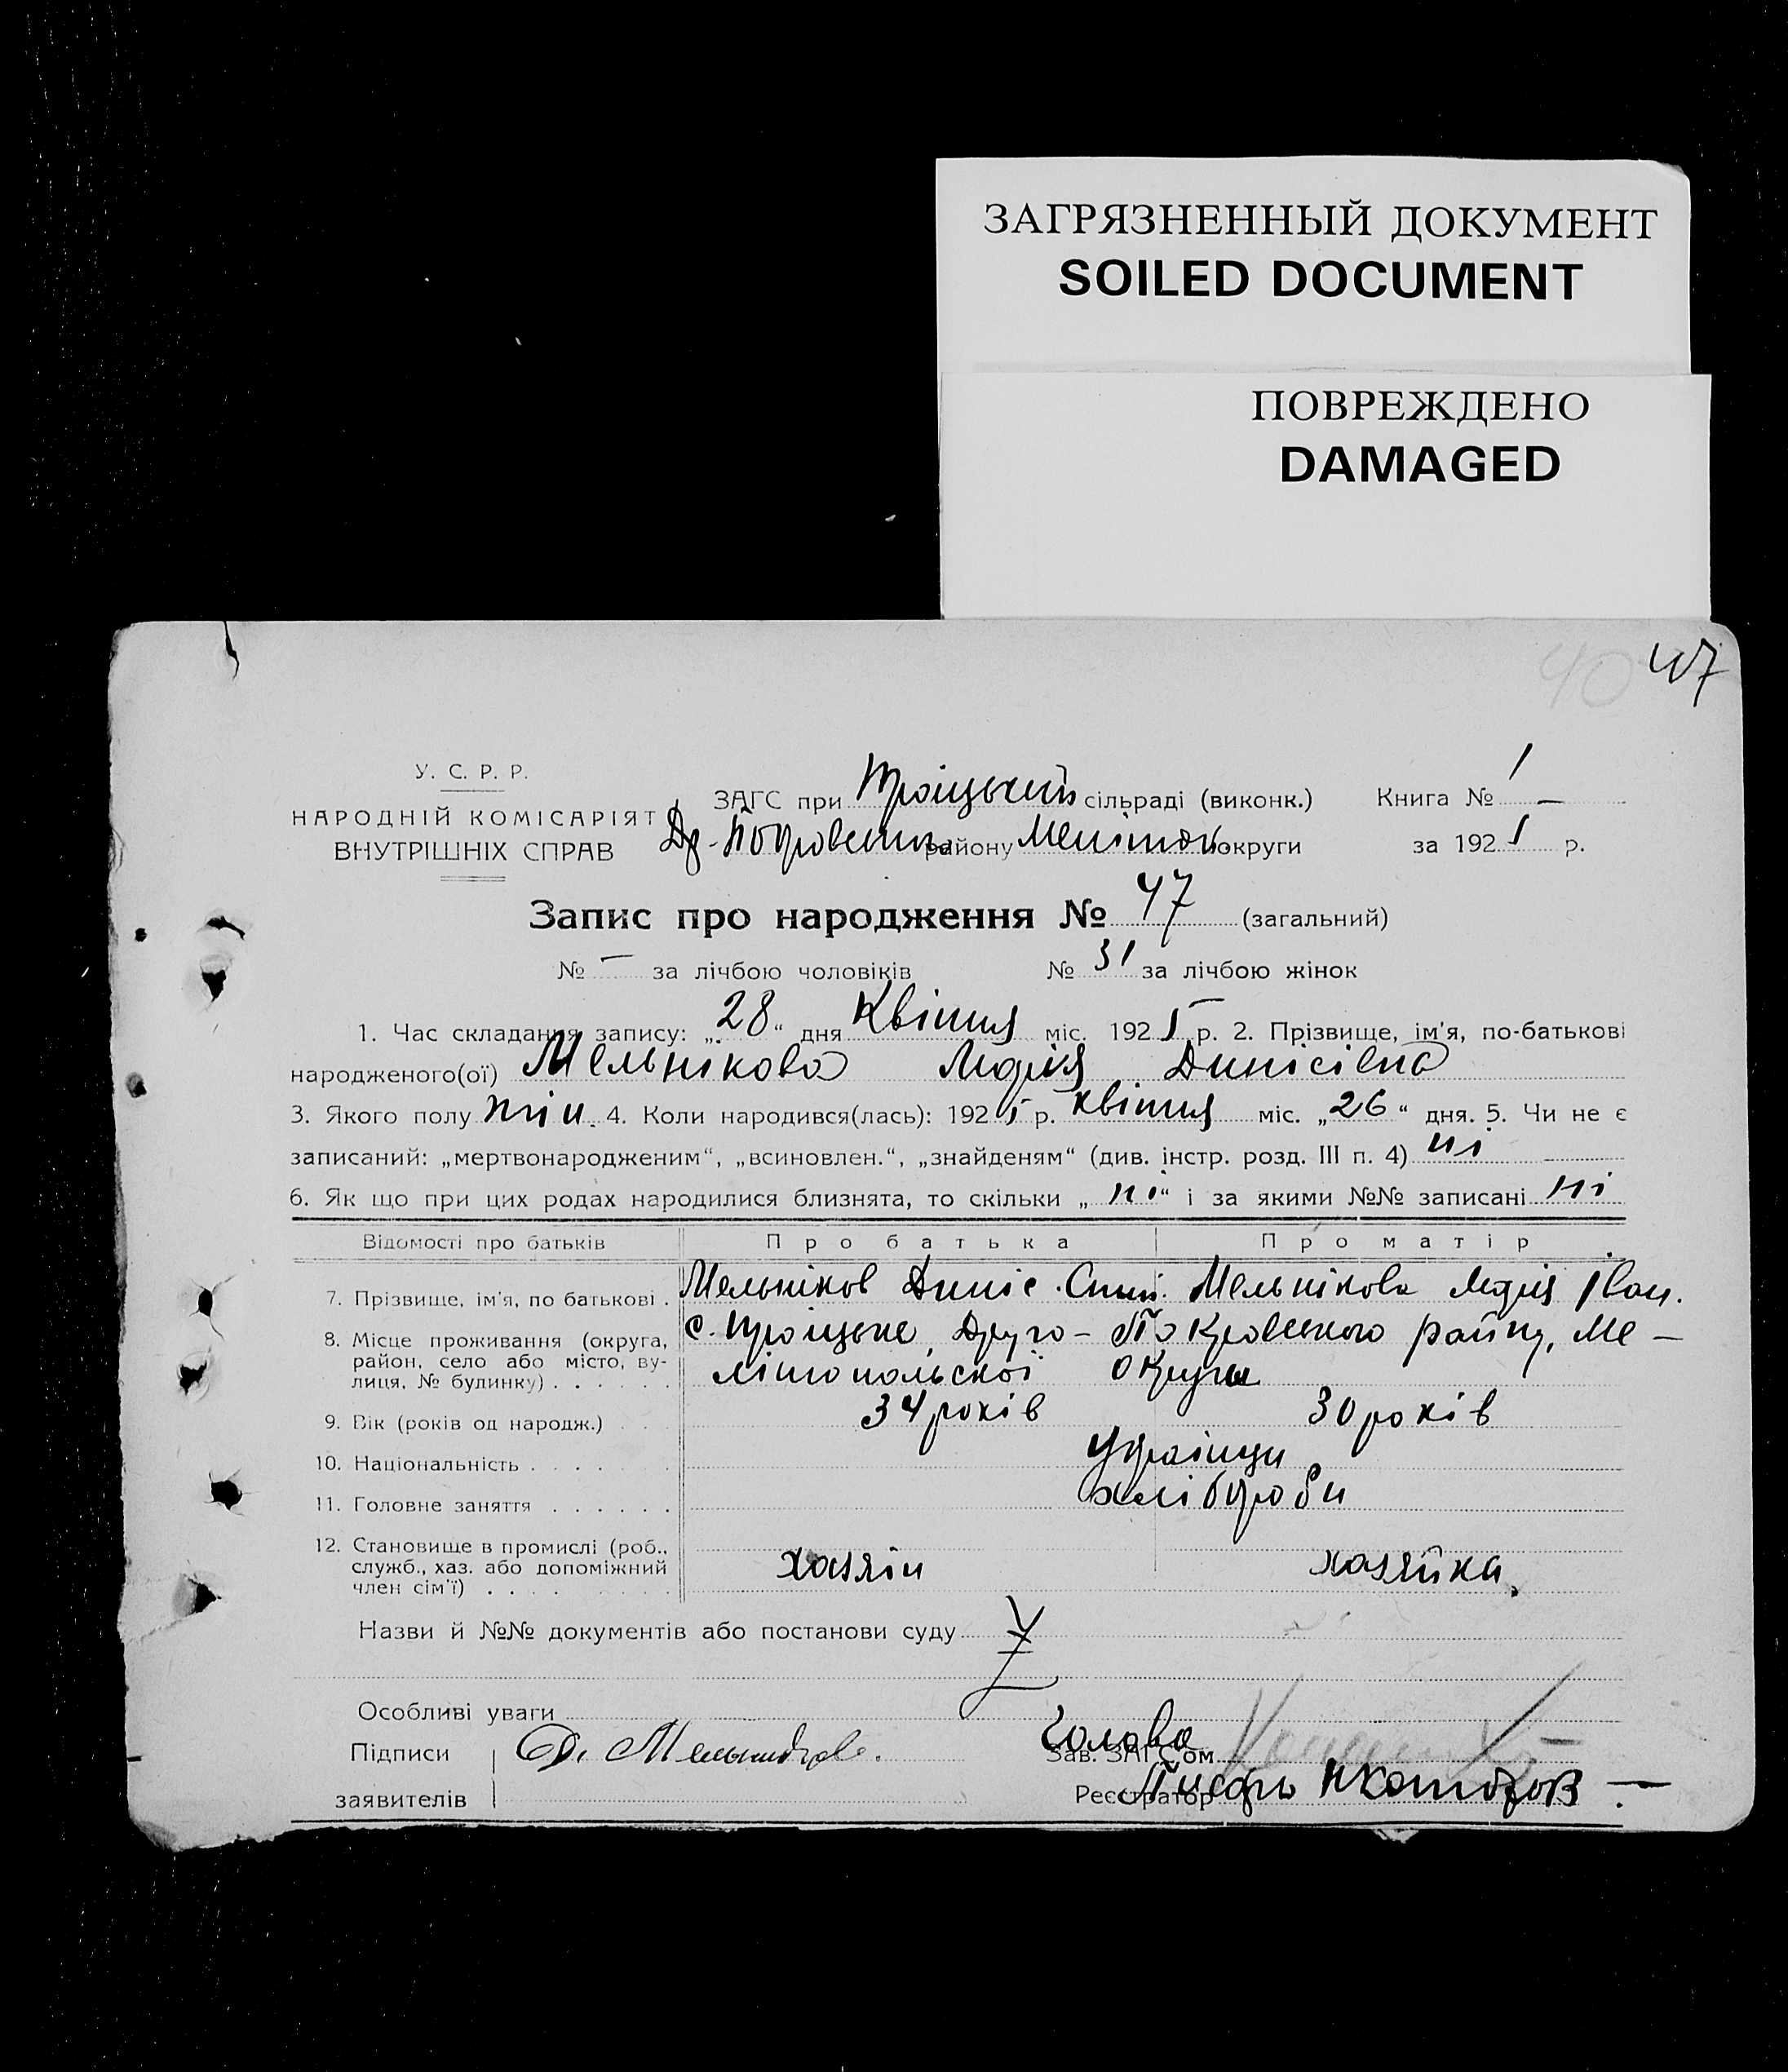 ЗАГРЯЗНЕННЫЙ ДОКУМЕНТ
SOILED DOCUMENT
ПОВРЕЖДЕНО
DAMAGED
40 47
У. С. Р. Р.
НАРОДНІЙ КОМІСАРІЯТ
ВНУТРІШНІХ СПРАВ
ЗАГС при Троіцький сільраді (виконк.) Книга № 1
Др.-Покровськ. району Меліток. округи за 1925 р.
Запис про народження № 47 (загальний)
№ – за лічбою чоловіків № 31 за лічбою жінок
1. Час складання запису: „28“ дня Квітня міс. 1925 р. 2. Прізвище, ім'я, по-батькові
народженого(ої) Мельнікова Марія Динісівна
3. Якого полу жін. 4. Коли народився(лась): 1925 р. квітня міс. „26“ дня. 5. Чи не є
записаний: „мертвонародженим“, „всиновлен.“, „знайденям“ (див. інстр. розд. III п. 4) ні
6. Як що при цих родах народилися близнята, то скільки „ні“ і за якими №№ записані ні
Відомості про батьків Про батька Про матір
7. Прізвище, ім'я, по батькові . Мельніков Диніс Мельнікова Марія Іван.
8. Місце проживання (округа, с. Троіцьке, Друго-Покровського району, Ме-
район, село або місто, ву-
лиця, № будинку) . . . . . . літопольскоі Округи
9. Вік (років од народж.) . . 34 років 30 років
10. Національність . . . . . Українци
11. Головне заняття . . . . . . хлібороби
12. Становище в промислі (роб.,
служб., хаз. або допоміжний хазяін хазяйка.
член сім'ї) . . . . . . . . .
Назви й №№ документів або постанови суду
Особливі уваги
Підписи Д. Мельников. Голова
Зав. ЗАГС'ом
заявителів Реєстратор